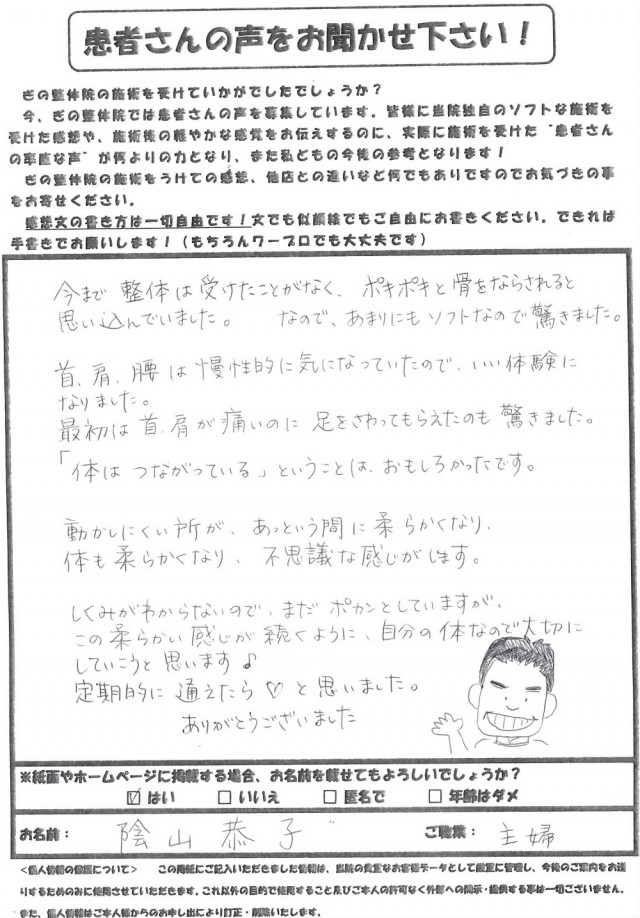 患者さんの声をお聞かせ下さい！
ぎの整体院の施術を受けていかがでしたでしょうか？
今、ぎの整体院では患者さんの声を募集しています。皆様に当院独自のソフトな施術を
受けた感想や、施術後の軽やかな感覚をお伝えするのに、実際に施術を受けた“患者さん
の率直な声”が何よりの力となり、また私どもの今後の参考となります！
ぎの整体院の施術をうけての感想、他店との違いなど何でもありですのでお気づきの事
をお寄せください。
感想文の書き方は一切自由です！文でも似顔絵でもご自由にお書きください。できれば
手書きでお願いします！（もちろんワープロでも大丈夫です）
今まで 整体は受けたことがなく、ポキポキと骨をならされると
思い込んでいました。 なので、あまりにもソフトなので驚きました。
首、肩、腰は慢性的に気になっていたので、いい体験に
なりました。
最初は首、肩が痛いのに 足をさわってもらえたのも驚きました。
「体は つながっている」ということは、おもしろかったです。
動かしにくい所が、あっという間に柔らかくなり、
体も柔らかくなり、不思議な感じがします。
しくみがわからないので、まだ ポカンとしていますが、
この柔らかい感じが続くように、自分の体なので大切に
していこうと思います♪
定期的に通えたら♡と思いました。
ありがとうございました
※紙面やホームページに掲載する場合、お名前を載せてもよろしいでしょうか？
☑ はい □ いいえ □ 匿名で □ 年齢はダメ
お名前： 陰山恭子 ご職業： 主婦
<個人情報の保護について> この用紙にご記入いただきました情報は、当院の貴重なお客様データとして厳重に管理し、今後のご案内をお送
りするためのみに使用させていただきます。これ以外の目的で使用すること及びご本人の許可なく外部への開示・提供する事は一切ございません。
また、個人情報はご本人様からのお申し出により訂正・削除いたします。